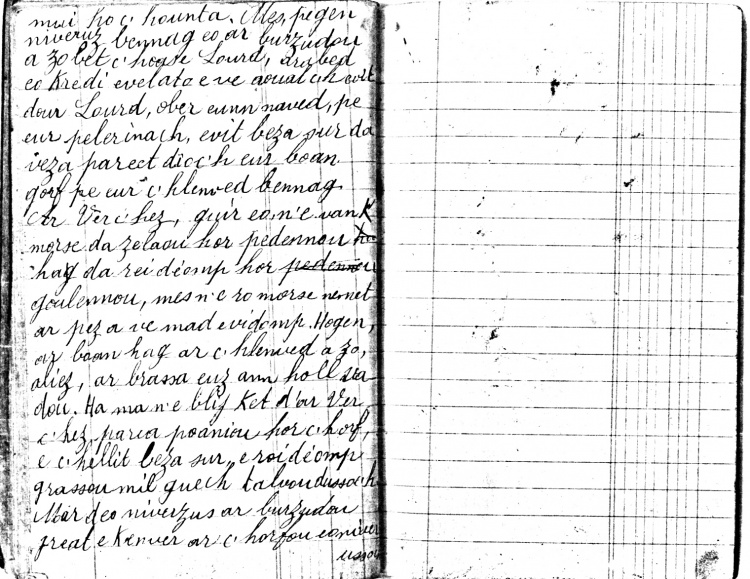 mui ho c'hounta. Mes, pegen
niveruz bennag eo ar burzudou
a zo bet c'hoase Lourd, arabed
eo Kredi evelato e ve aoualc'h evit
dour Lourd, ober eunn naved, pe
eur pelerinach, evit beza sur da
veza pareet dioc'h eur boan
gorf pe eur c'hlenved bennag
Ar Verc'hez, guir eo, n'e vank
morse da zelaou hor pedennou
hag da rei déomp hor pedennou
goulennou, mes n'e ro morse nemet
ar pez a ve mad evidomp. Hogen,
ar boan hag ar c'hlenved a zo,
aliez, ar brassa euz ann holl va
dou. Ha ma n'e blij Ket d'ar Ver
c'hez, parea poaniou hor c'horf,
e c'hellit beza sur, e roi déomp
grassou mil guech talvoudussoc'h
Mar deo niverzus ar burzudou
great e Kenver ar c'horfou eo niver
ussoc'h